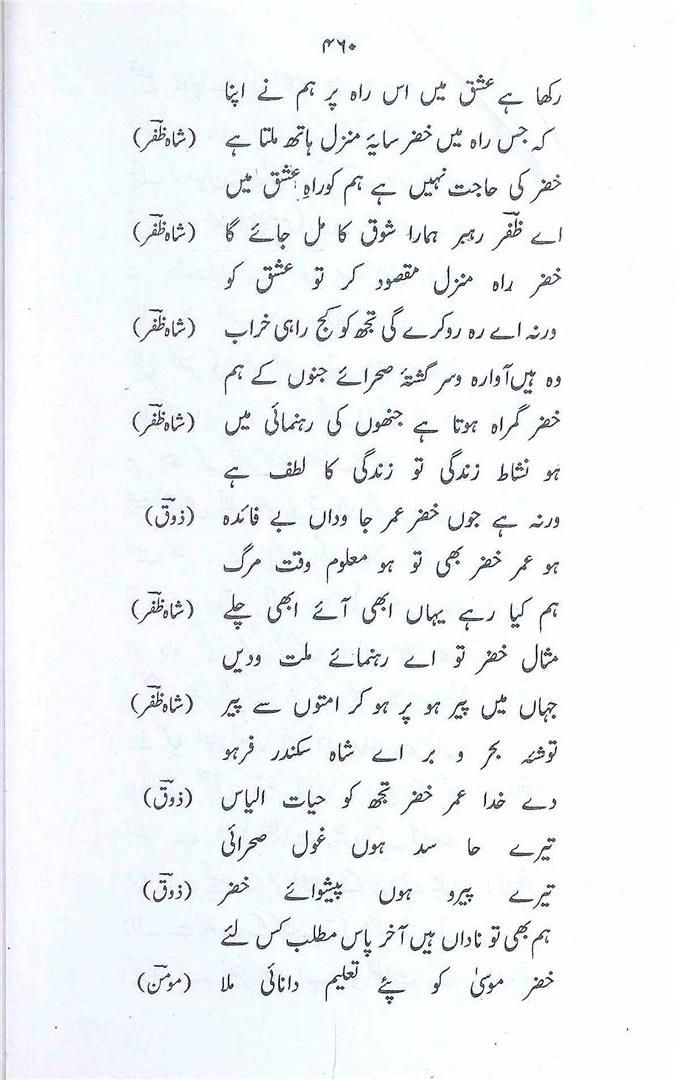 ۴۶۰
رکھا ہے عشق میں اس راہ پر ہم نے اپنا
کہ جس راہ میں خضر سایۂ منزل ہاتھ ملتا ہے (شاہ ظفؔر)
خضر کی حاجت نہیں ہے ہم کو راہِ عشق میں
اے ظفؔر رہبر ہمارا شوق کا مل جائے گا (شاہ ظفؔر)
خضر راہ منزل مقصود کر تو عشق کو
ورنہ اے رہ رو کرے گی تجھ کو کج راہی خراب (شاہ ظفؔر)
وہ ہیں آوارہ وسر گشتۂ صحرائے جنوں کے ہم
خضر گمراہ ہوتا ہے جنھوں کی رہنمائی میں (شاہ ظفؔر)
ہو نشاط زندگی تو زندگی کا لطف ہے
ورنہ ہے جوں خضر عمر جا وداں بے فائدہ (ذوقؔ)
ہو عمر خضر بھی تو ہو معلوم وقت مرگ
ہم کیا رہے یہاں ابھی آئے ابھی چلے (شاہ ظفؔر)
مثال خضر تو اے رہنمائے ملت ودیں
جہاں میں پیر ہو پر ہو کر امتوں سے پیر (شاہ ظفؔر)
توشۂ بحر و بر اے شاہ سکندر فرہو
دے خدا عمر خضر تجھ کو حیات الیاس (ذوقؔ)
تیرے حا سد ہوں غول صحرائی
تیرے پیرو ہوں پیشوائے خضر (ذوقؔ)
ہم بھی تو ناداں ہیں آخر پاس مطلب کس لئے
خضر موسیٰ کو پئے تعلیم دانائی ملا (مومنؔ)